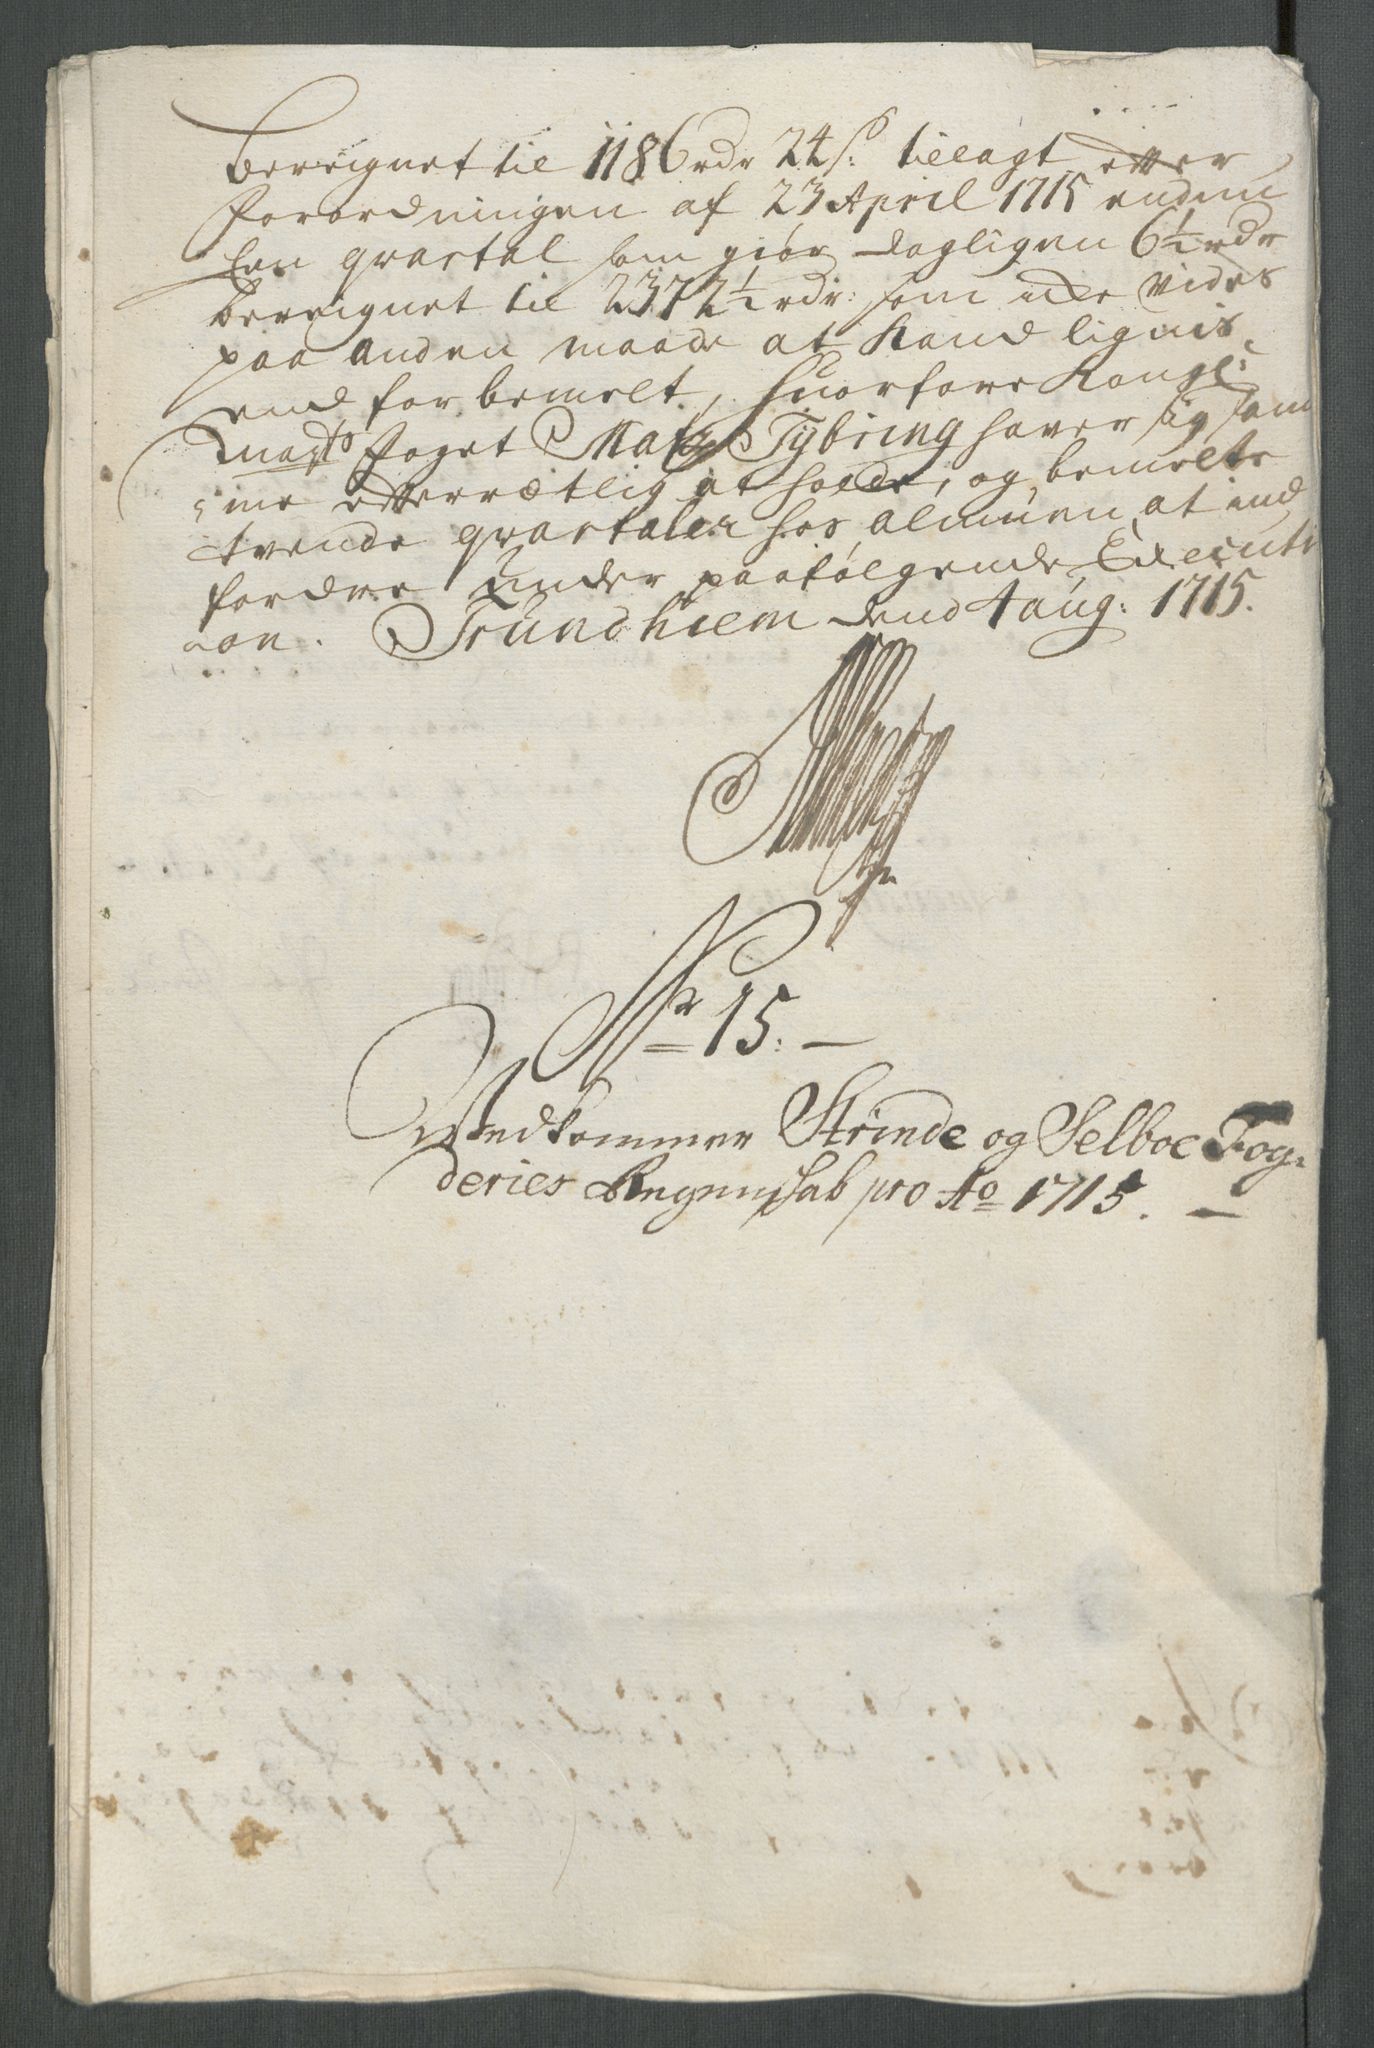 Bereignet til 1186 rdr 24 s: tillagt etter
forordningen af 23 April 1715 endnu
Een qvartal som giør dagligen 6½ rdr
bereignet til 2372½ rdr: som icke vides
paa anden maade at kand lignis
end forbemelt, huorfore Kongl:
Mayts foget Matz Tybring haver sig sam¬
me etterrætlig at holde, og bemelte
tvende qvartaler hos almuen at ind
fordre under paafølgende Executi
on. Trundhiem dend 4 aug: 1715.
Nr 15.
Vedkommer Strinde og Selboe Fog¬
deries Regenschab pro Ao 1715.